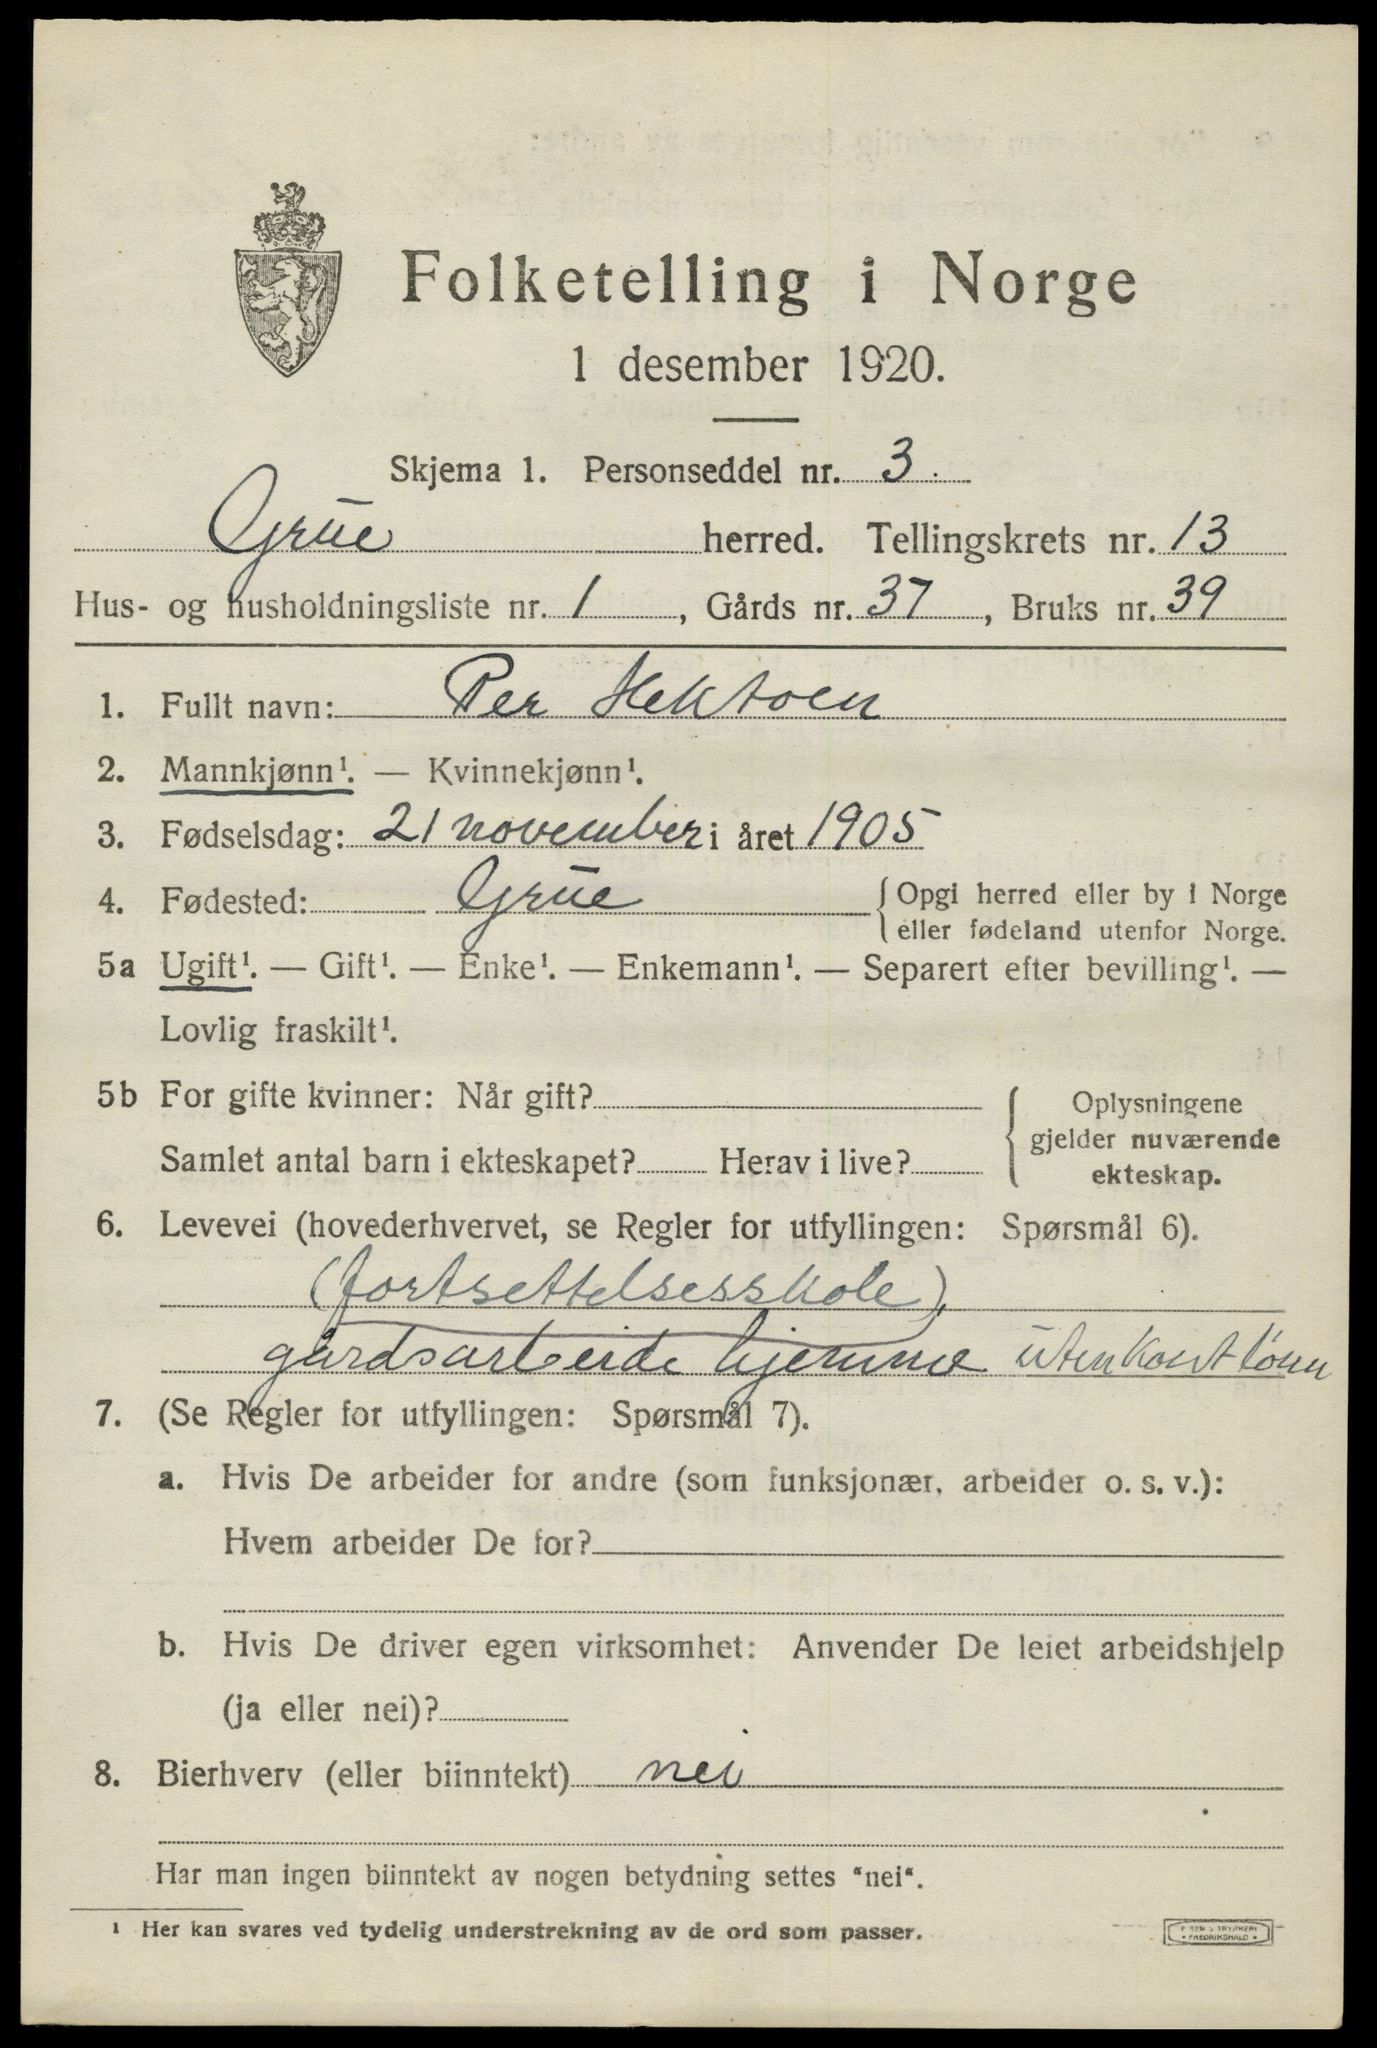 Folketelling i Norge
1 desember 1920.
Skjema 1. Personseddel nr. 3.
Grue herred. Tellingskrets nr. 13
Hus- og husholdningsliste nr. 1, Gårds nr. 37, Bruks nr. 39
1. Fullt navn: Per Hektoen
2. Mannkjønn¹. — Kvinnekjønn¹.
3. Fødselsdag: 21 november i året 1905
4. Fødested: Grue { Opgi herred eller by i Norge
eller fødeland utenfor Norge.
5a Ugift¹. — Gift¹. — Enke¹. — Enkemann¹. — Separert efter bevilling¹. —
Lovlig fraskilt¹.
5b For gifte kvinner: Når gift? { Oplysningene
gjelder nuværende
Samlet antal barn i ekteskapet? Herav i live?
ekteskap.
6. Levevei (hovederhvervet, se Regler for utfyllingen: Spørsmål 6).
(fortsettelsesskole),
gårdsarbeide hjemme uten kont lønn
7. (Se Regler for utfyllingen: Spørsmål 7).
a. Hvis De arbeider for andre (som funksjonær, arbeider o. s. v.):
Hvem arbeider De for?
b. Hvis De driver egen virksomhet: Anvender De leiet arbeidshjelp
(ja eller nei)?
8. Bierhverv (eller biinntekt) nei
Har man ingen biinntekt av nogen betydning settes "nei".
¹ Her kan svares ved tydelig understrekning av de ord som passer.
FREDRIKSHALD